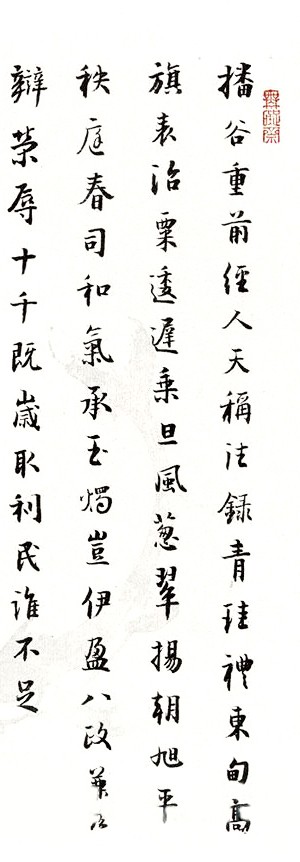 播谷重前經人天稱往録青珪禮東甸高
旗表治粟逶遲乘旦風葱翠揚朝旭平
秩庭春司和氣承玉燭豈伊盈八政兼以
辯榮辱十千既歲取利民誰不足